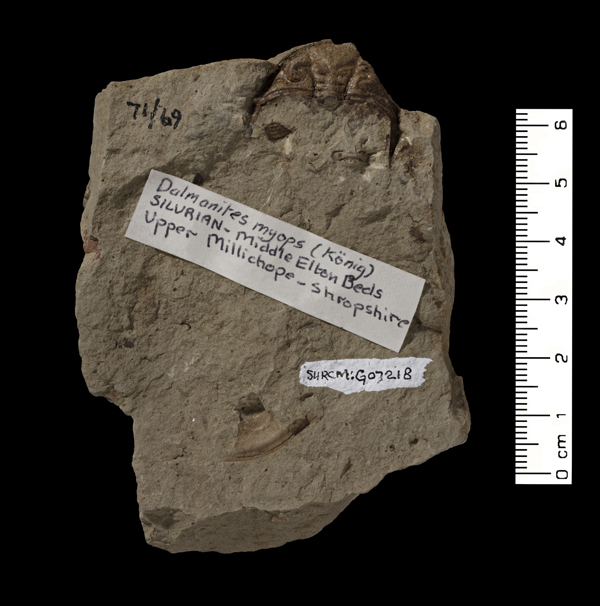 71/69
Dalmanites myops (König)
SILURIAN - Middle Elton Beds
Upper Millichope - Shropshire
SHRCM:G07218
6
5
4
3
2
1
0 cm